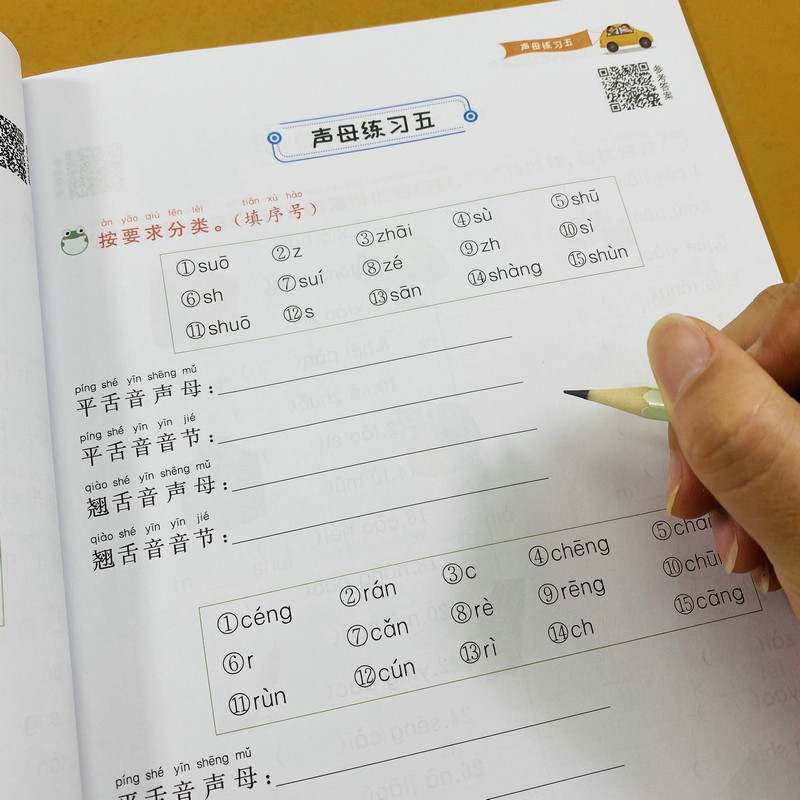 声母练习五
参考答案
声母练习五
àn yāo qiú fēn lèi tián xù hào
按要求分类。（填序号）
①suō ②z ③zhāi ④sù ⑤shū
⑥sh ⑦suí ⑧zé ⑨zh ⑩sì
⑪shuō ⑫s ⑬sān ⑭shàng ⑮shùn
píng shé yīn shēng mǔ
平舌音声母：
píng shé yīn yīn jié
平舌音音节：
qiào shé yīn shēng mǔ
翘舌音声母：
qiào shé yīn yīn jié
翘舌音音节：
①céng ②rán ③c ④chēng ⑤
⑥r ⑦cǎn ⑧rè ⑨rēng ⑩
⑪rùn ⑫cún ⑬rì ⑭ch ⑮cāng
píng shé yīn shēng mǔ
平舌音声母：